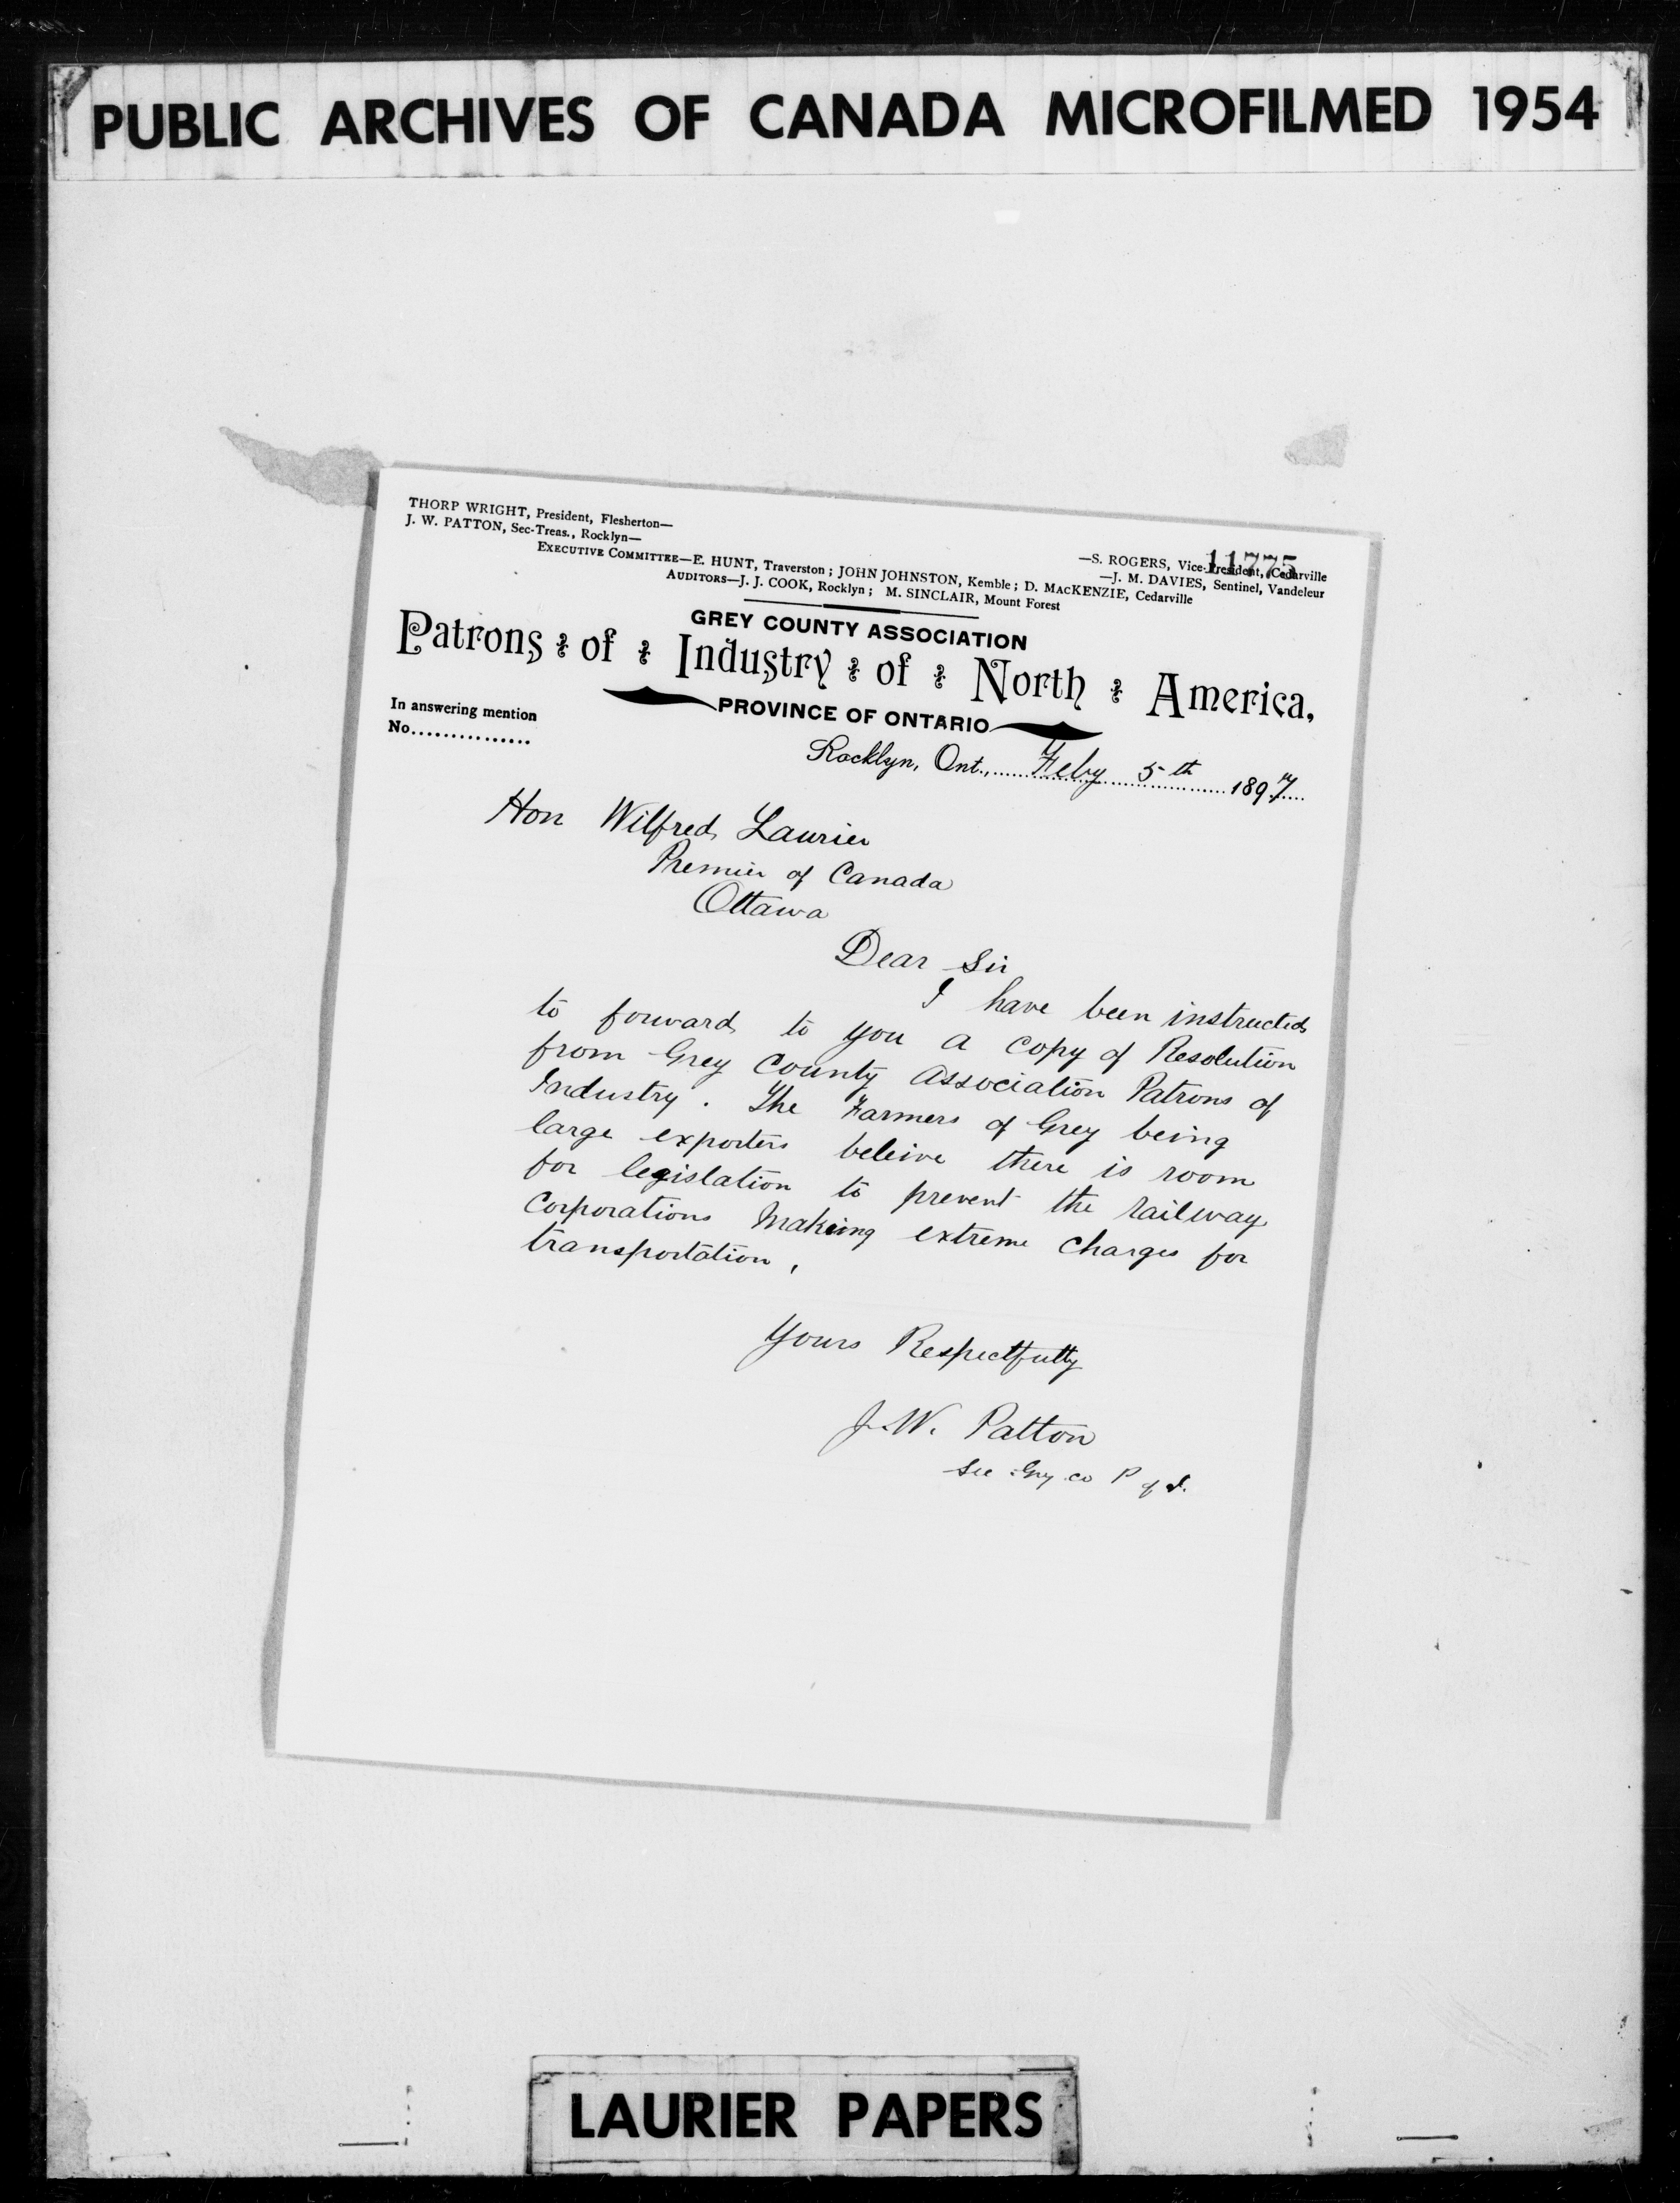 PUBLIC ARCHIVES OF CANADA MICROFILMED 1954
THORP WRIGHT, President, Flesherton—
J. W. PATTON, Sec-Treas., Rocklyn—
—S. ROGERS, Vice-President, Cedarville
11775
—J. M. DAVIES, Sentinel, Vandeleur
EXECUTIVE COMMITTEE—E. HUNT, Traverston; JOHN JOHNSTON, Kemble; D. MACKENZIE, Cedarville
AUDITORS—J. J. COOK, Rocklyn; M. SINCLAIR, Mount Forest
GREY COUNTY ASSOCIATION
Patrons of Industry of North America,
PROVINCE OF ONTARIO
In answering mention
No...............
Rocklyn, Ont., Feby 5th 1897
Hon Wilfred Laurier
Premier of Canada
Ottawa
Dear Sir
I have been instructed
to forward to you a copy of Resolution
from Grey County Association Patrons of
Industry. The Farmers of Grey being
large exporters beleive there is room
for legislation to prevent the railway
Corporations Makeing extreme charges for
transportation,
Yours Respectfully
J. W. Patton
Sec Grey co P of I.
LAURIER PAPERS